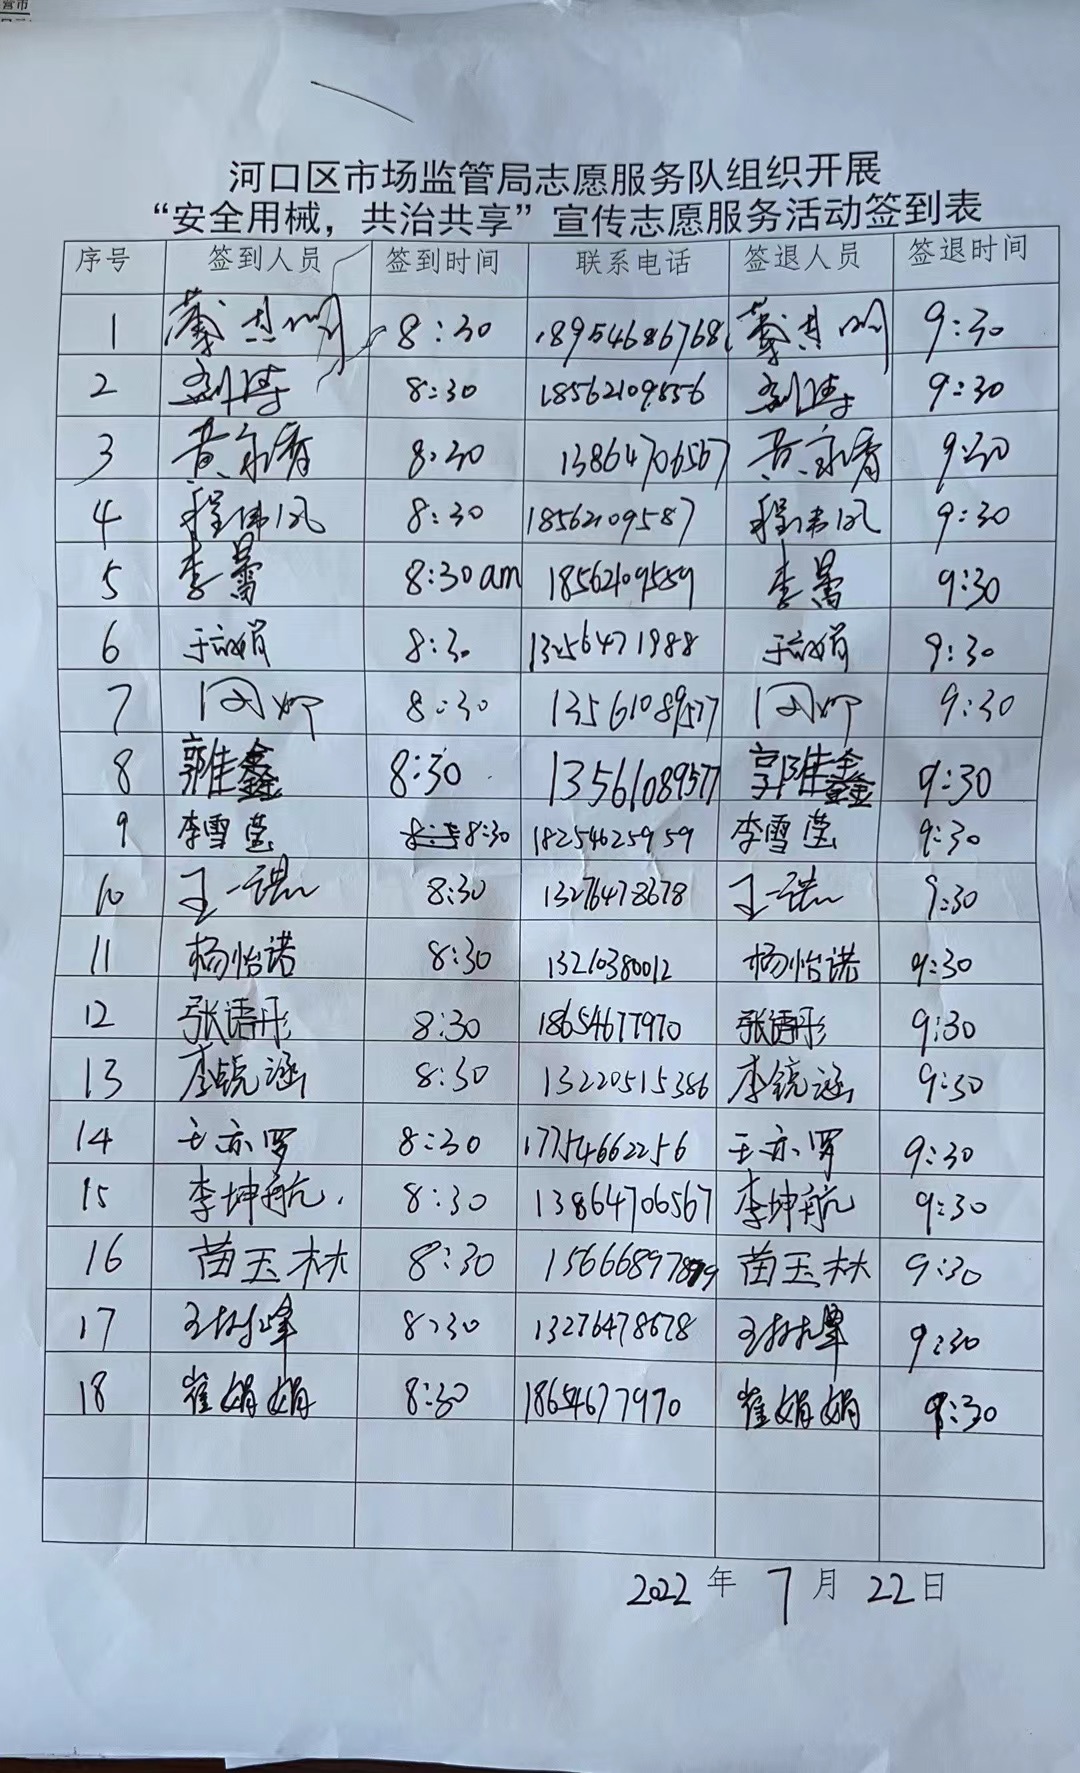 营市
河口区市场监管局志愿服务队组织开展
“安全用械，共治共享”宣传志愿服务活动签到表
序号 签到人员 签到时间 联系电话 签退人员 签退时间
1 8:30 18954686768 9:30
2 刘涛 8:30 18562109556 刘涛 9:30
3 黄永香 8:30 13864706567 黄永香 9:30
4 程伟风 8:30 18562109587 程伟风 9:30
5 李蕾 8:30am 18562109559 李蕾 9:30
6 于敏娟 8:30 13256471988 于敏娟 9:30
7 8:30 13561089577 9:30
8 郭佳鑫 8:30 13561089577 郭佳鑫 9:30
9 李雪莹 8:30 18254625959 李雪莹 9:30
10 王一诺 8:30 13276478678 王一诺 9:30
11 杨怡诺 8:30 13210380012 杨怡诺 9:30
12 张语彤 8:30 18654677970 张语彤 9:30
13 李锐涵 8:30 13220515386 李锐涵 9:30
14 王亦罗 8:30 17754662256 王亦罗 9:30
15 李坤航 8:30 13864706567 李坤航 9:30
16 苗玉林 8:30 苗玉林 9:30
17 王树峰 8:30 13276478678 王树峰 9:30
18 崔娟娟 8:30 18654677970 崔娟娟 9:30
2022年7月22日